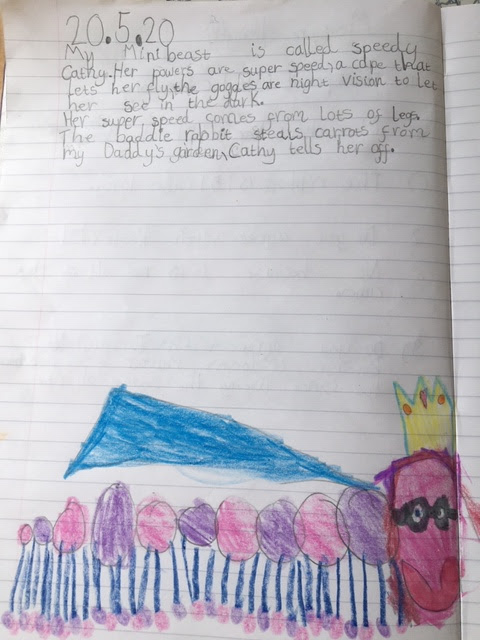 20.5.20
My Minibeast is called speedy
Cathy. Her powers are super speed, a cape that
lets her fly, the goggles are night vision to let
her see in the dark.
Her super speed comes from lots of legs.
The baddie rabbit steals carrots from
my Daddy's garden, Cathy tells her off.